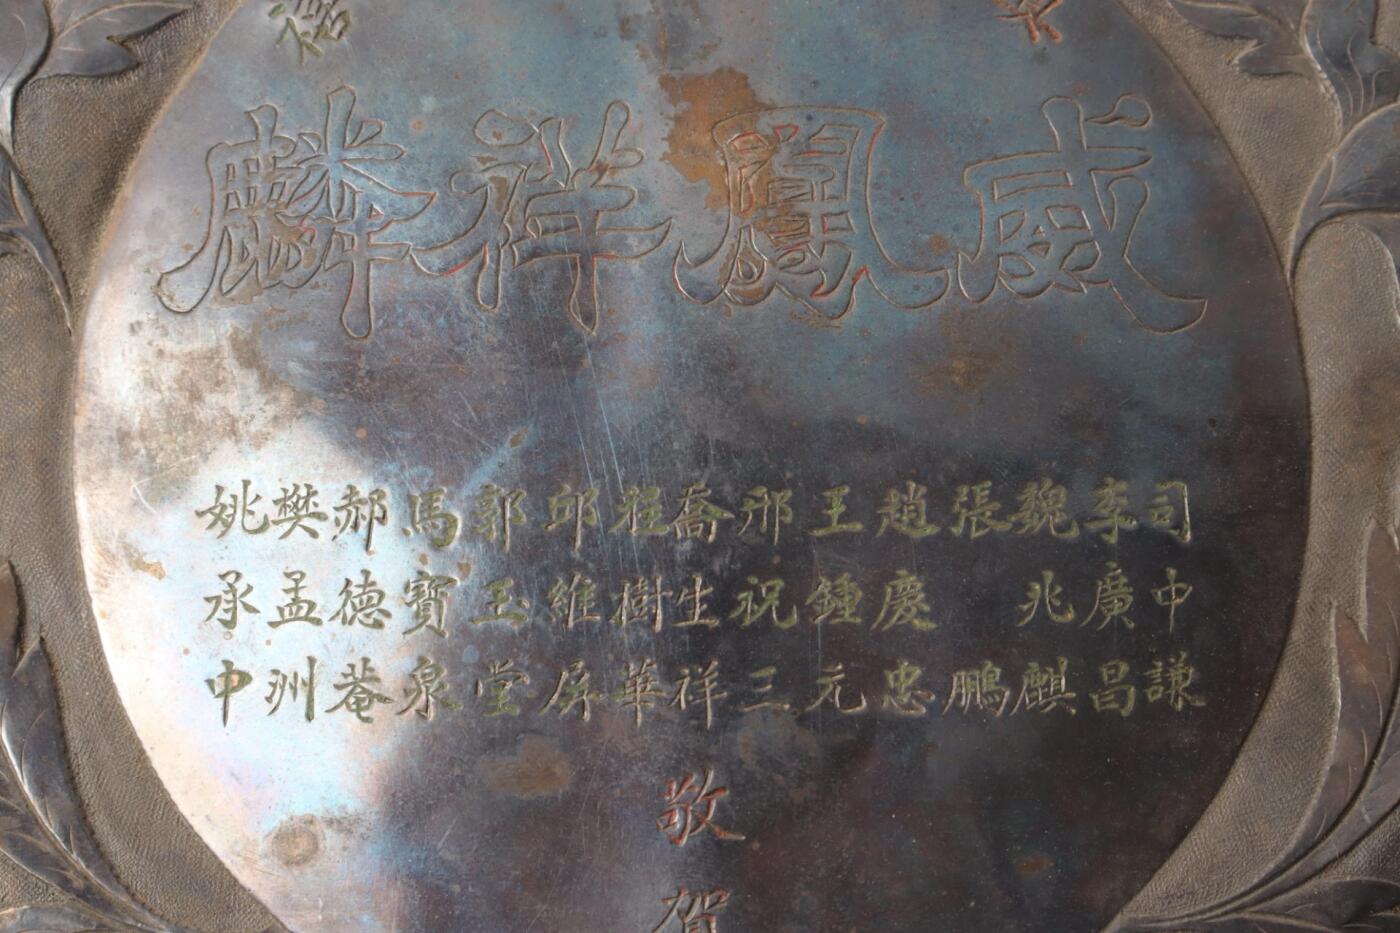 威鳳祥麟
司中謙
李廣昌
魏兆麒
張鵬
趙慶忠
王鍾元
邢祝三
喬生祥
程樹華
邱維屏
郭玉堂
馬寶泉
郝德菴
樊孟洲
姚承中
敬賀